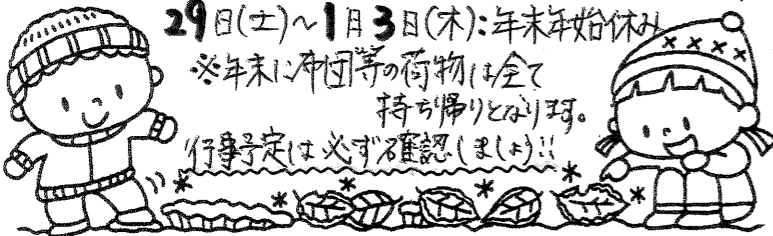 29日(土)～1月3日(木):年末年始休み
※年末に布団等の荷物は全て
持ち帰りとなります。
行事予定は必ず確認しましょう!!